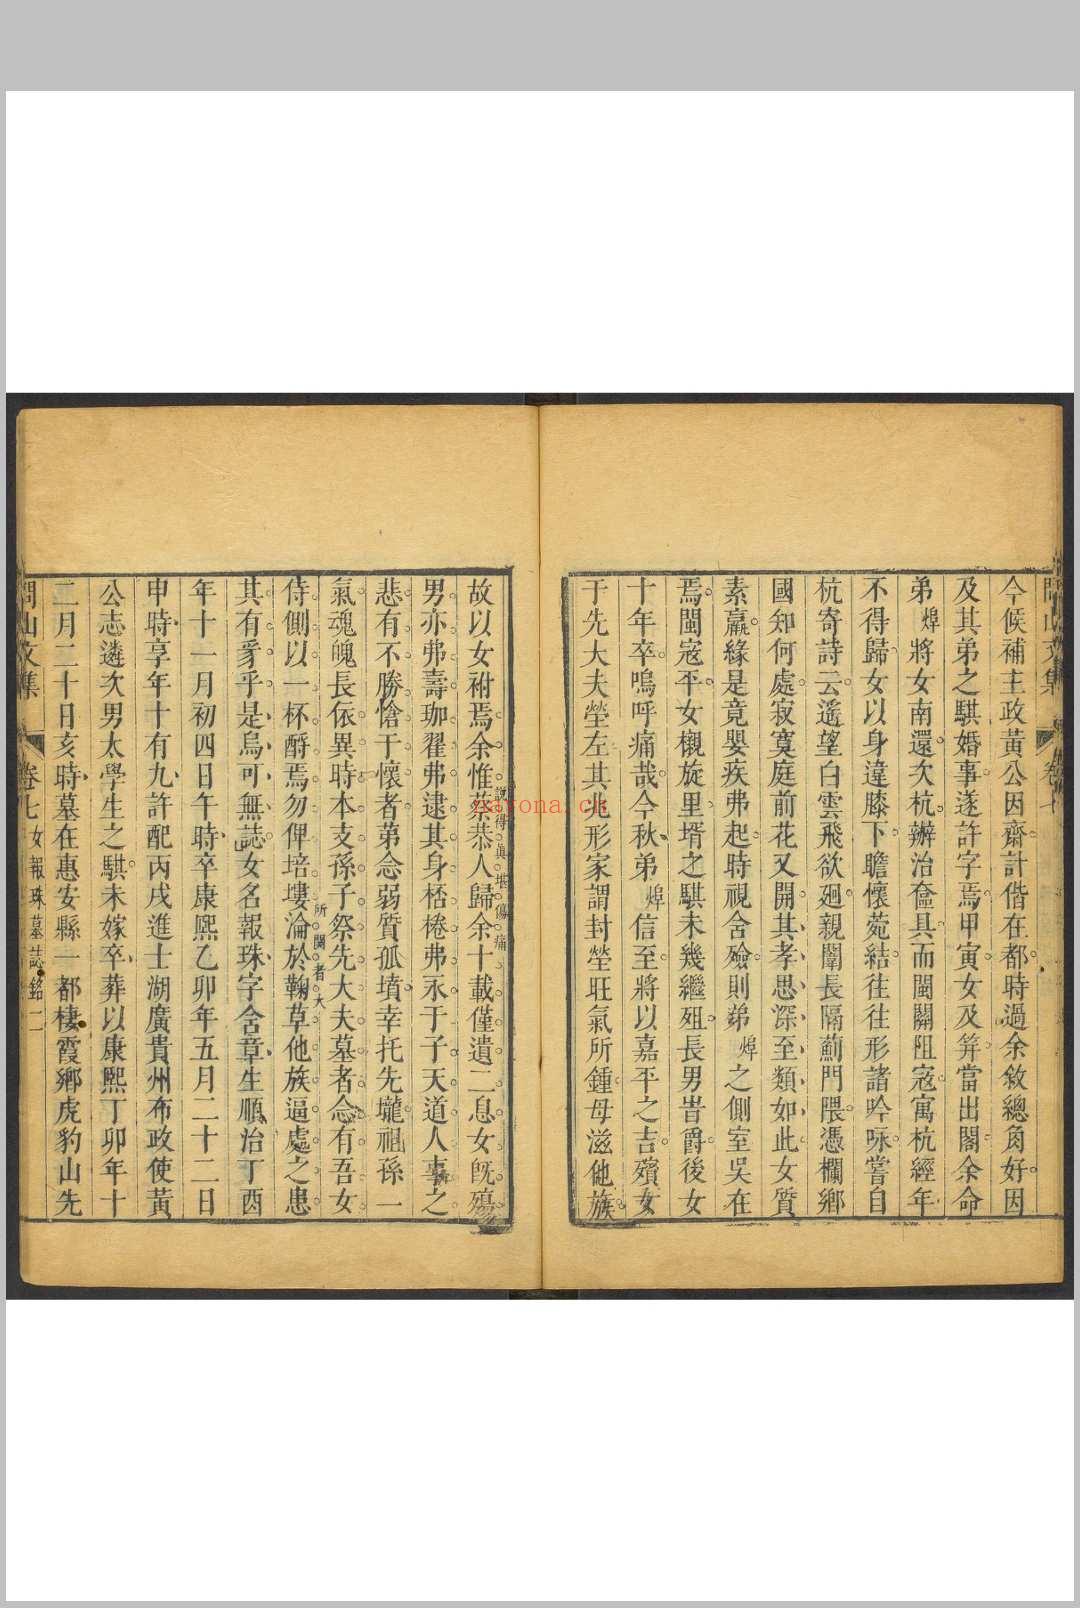 今候補主政黃公因齋計偕在都時過余敘總角好因
及其弟之騏婚事遂許字焉甲寅女及笄當出閣余命
弟焊將女南還次杭辦治奩具而閩關阻寇寓杭經年
不得歸女以身違膝下瞻懷菀結往往形諸吟咏嘗自
杭寄詩云遙望白雲飛欲廻親闈長隔薊門隈憑欄鄉
國知何處寂寞庭前花又開其孝思深至類如此女質
素羸緣是竟嬰疾弗起時視含殮則弟焊之側室吳在
焉閩寇平女櫬旋里壻之騏未幾繼殂長男岢爵後女
十年卒嗚呼痛哉今秋弟焊信至將以嘉平之吉殯女
于先大夫塋左其兆形家謂封塋旺氣所鍾毋滋他族
故以女祔焉余惟蔡恭人歸余十載僅遺二息女旣殤
說得眞堪傷痛
男亦弗壽珈翟弗逮其身桮棬弗永于子天道人事之
悲有不勝愴于懷者弟念弱質孤墳幸托先壠祖孫一
氣魂魄長依異時本支孫子祭先大夫墓者念有吾女
所關者大
侍側以一杯酹焉勿俾培塿淪於鞠草他族逼處之患
其有豸乎是烏可無誌女名報珠字含章生順治丁酉
年十一月初四日午時卒康熙乙卯年五月二十二日
申時享年十有九許配丙戌進士湖廣貴州布政使黃
公志遴次男太學生之騏未嫁卒葬以康熙丁卯年十
二月二十日亥時墓在惠安縣一都棲霞鄉虎豹山先
問山文集 卷七 女報珠墓誌銘 二